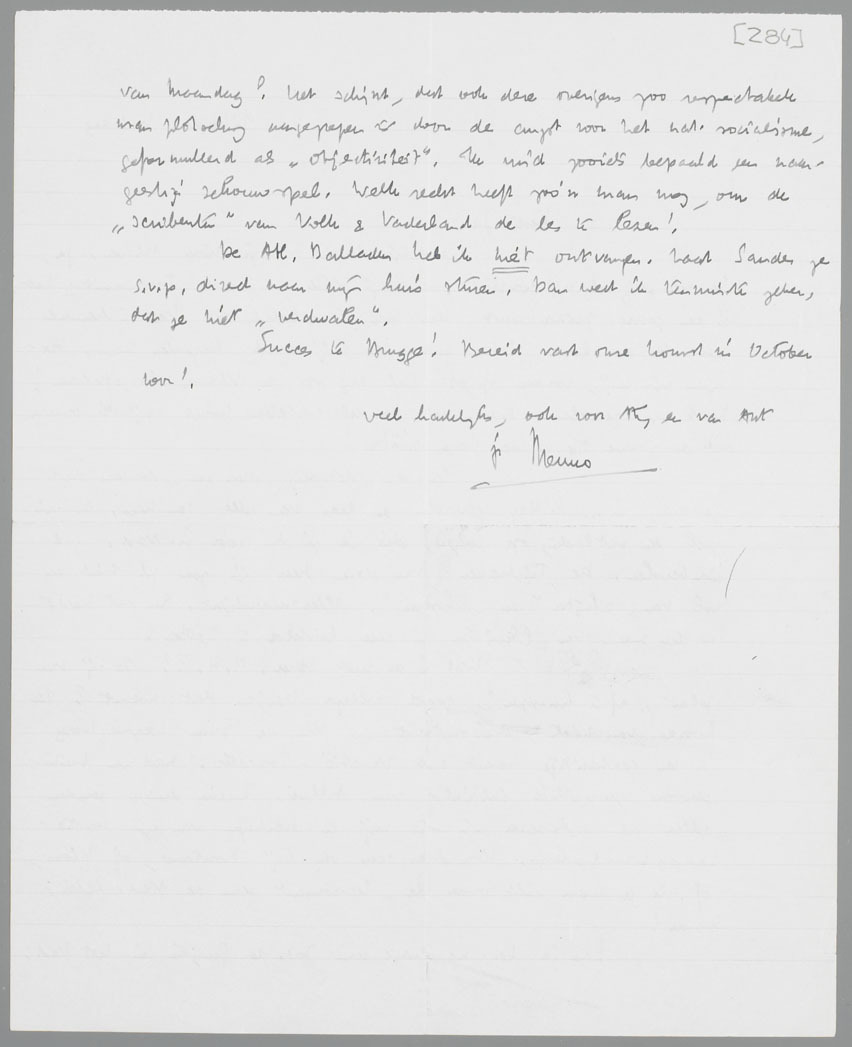 [284]
van Maandag? Het schijnt, dat ook deze overigens zoo respectabele
man plotseling aangegrepen is door de angst voor het nat. socialisme,
geformuleerd als „objectiviteit". Ik vind zooiets bepaald een naar-
geestig schouwspel. Welk recht heeft zoo'n man nog, om de
„scribenten" van Volk & Vaderland de les te lezen!
De Atl. Balladen heb ik niét ontvangen. Laat Sander ze
s.v.p. direct naar mijn huis sturen. Dan weet ik tenminste zeker,
dat ze niet „verdwalen".
Succes te Brugge! Bereid vast onze komst in October
voor!
veel hartelijks, ook voor Atty en van Ant
je Menno